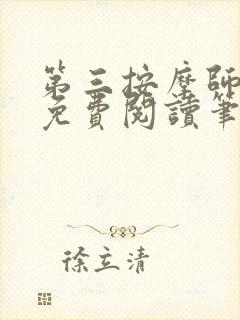 第三按摩師
免費閱讀筆
徐立清